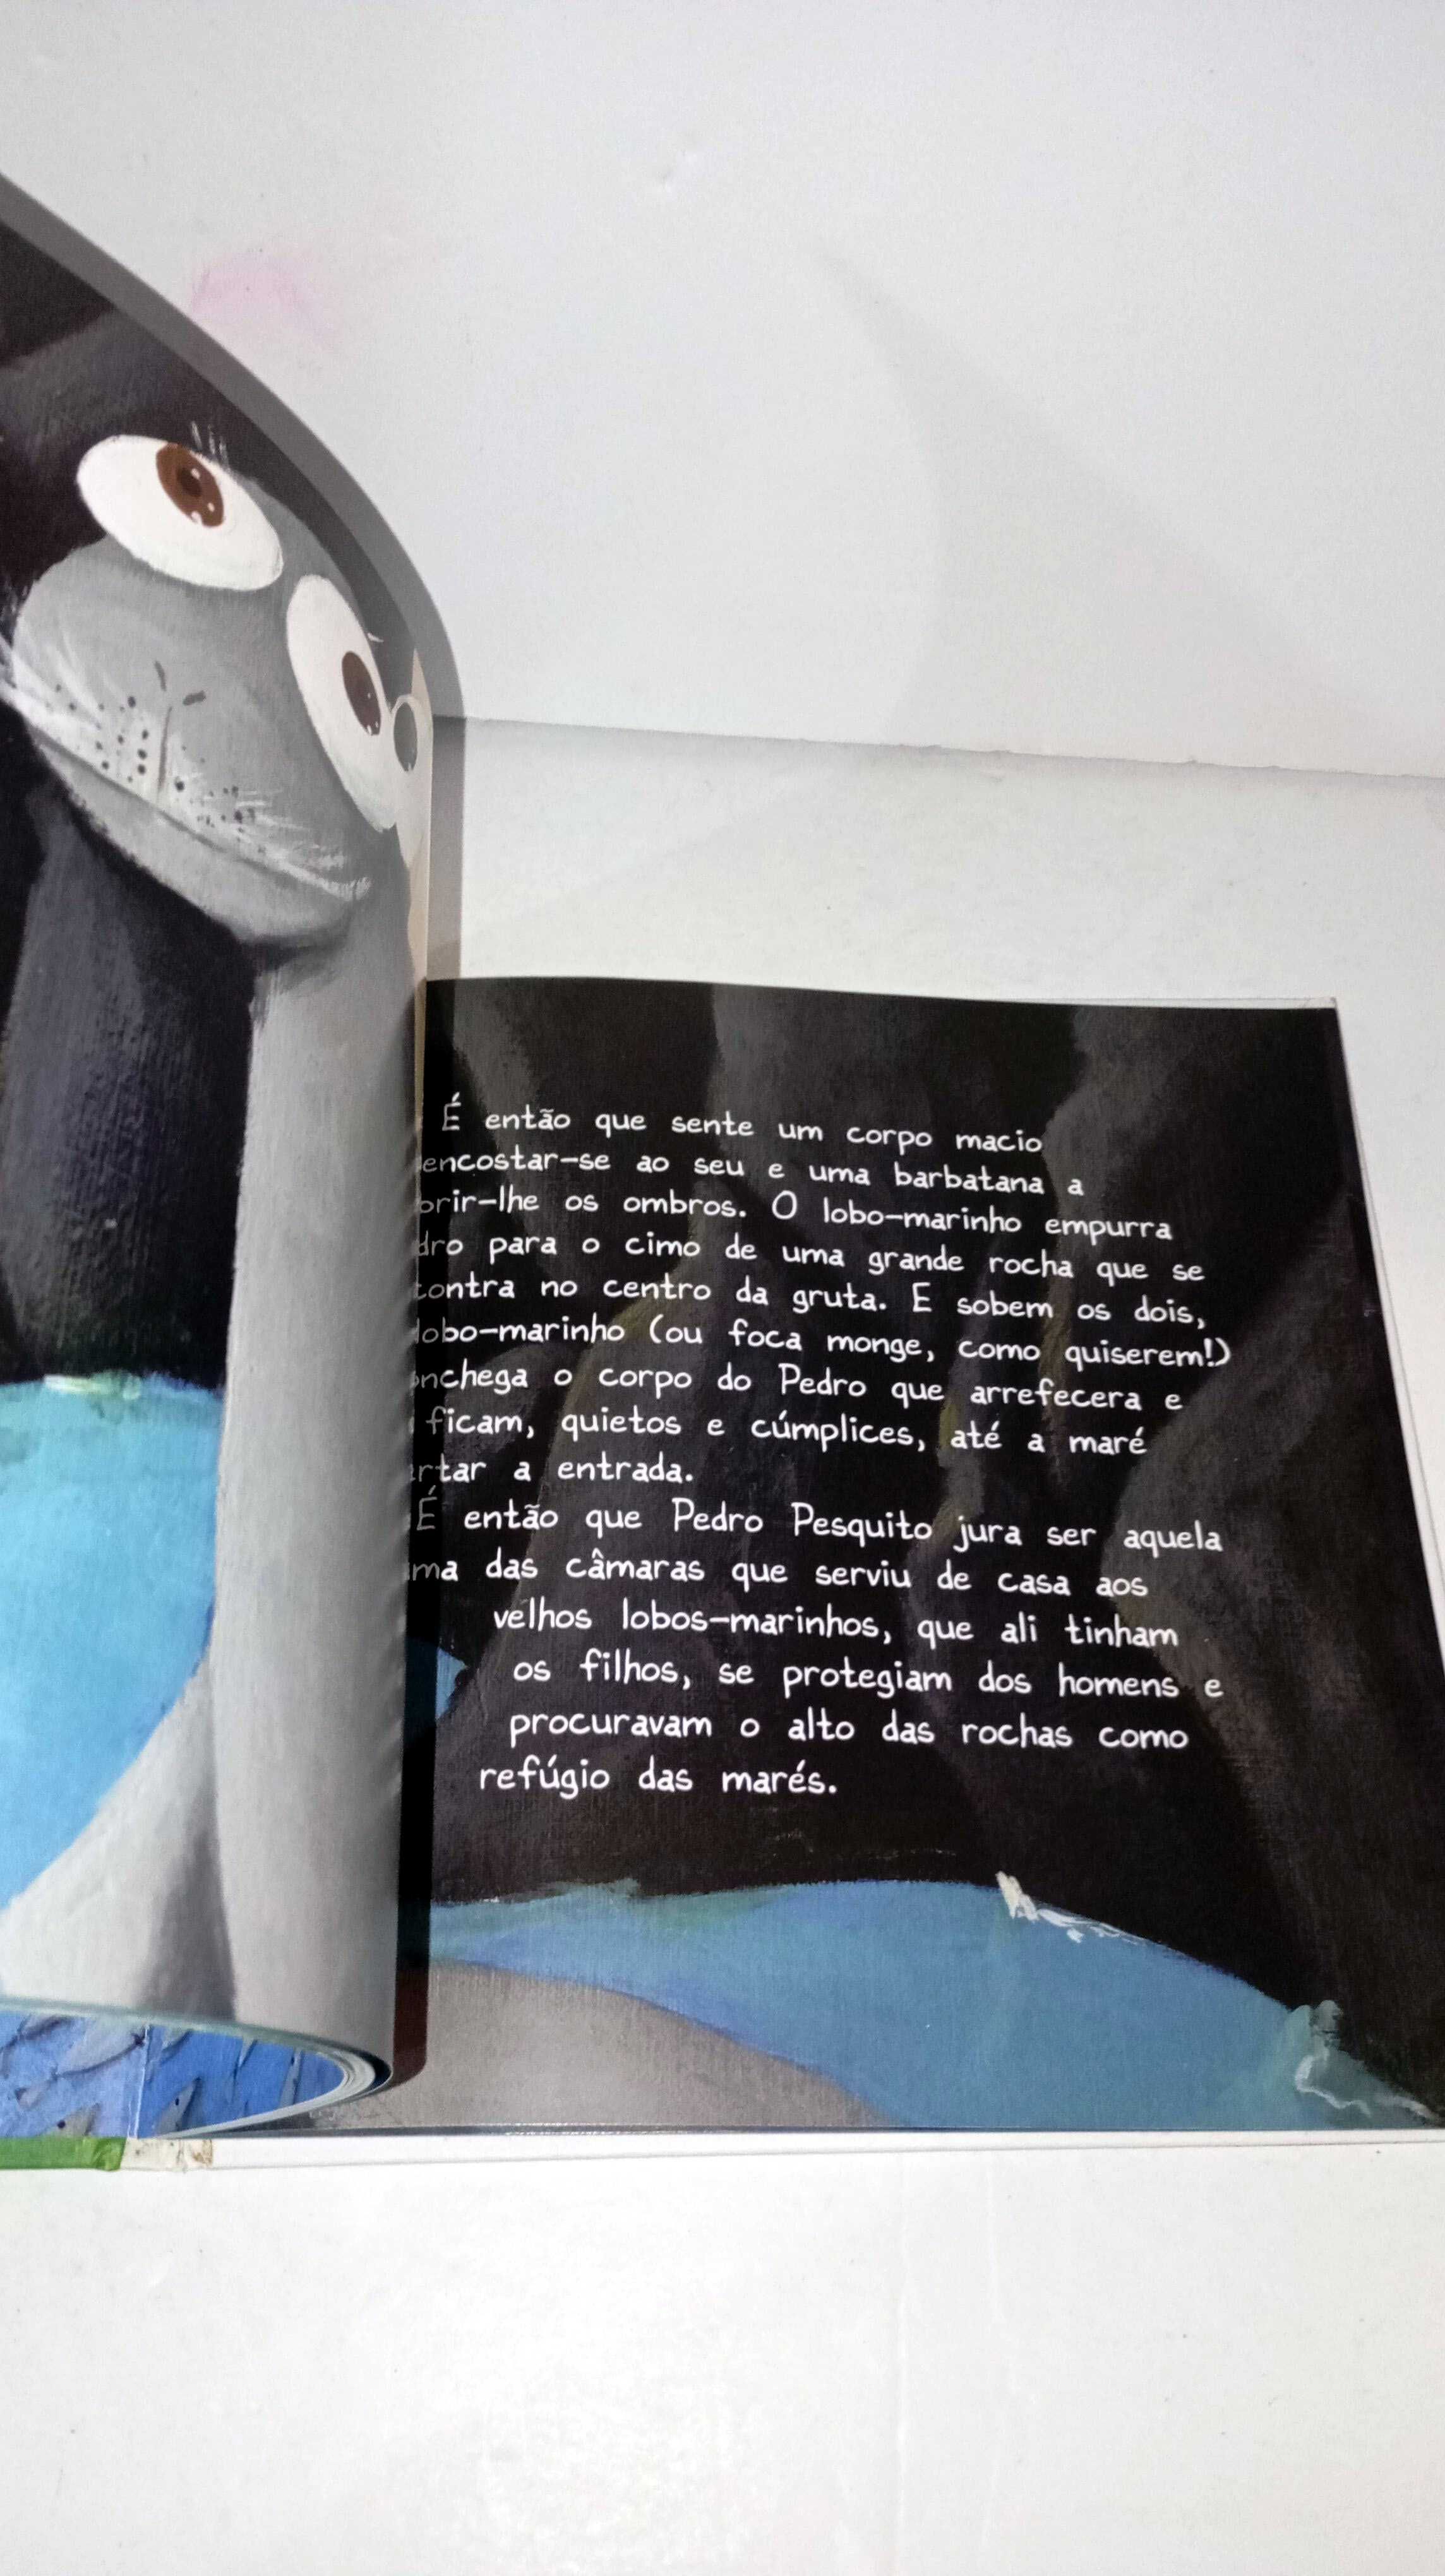 É então que sente um corpo macio
encostar-se ao seu e uma barbatana a
os ombros. O lobo-marinho empurra
para o cimo de uma grande rocha que se
no centro da gruta. E sobem os dois,
lobo-marinho (ou foca monge, como quiserem!)
o corpo do Pedro que arrefecera e
ficam, quietos e cúmplices, até a maré
a entrada.
É então que Pedro Pesquito jura ser aquela
das câmaras que serviu de casa aos
velhos lobos-marinhos, que ali tinham
os filhos, se protegiam dos homens e
procuravam o alto das rochas como
refúgio das marés.